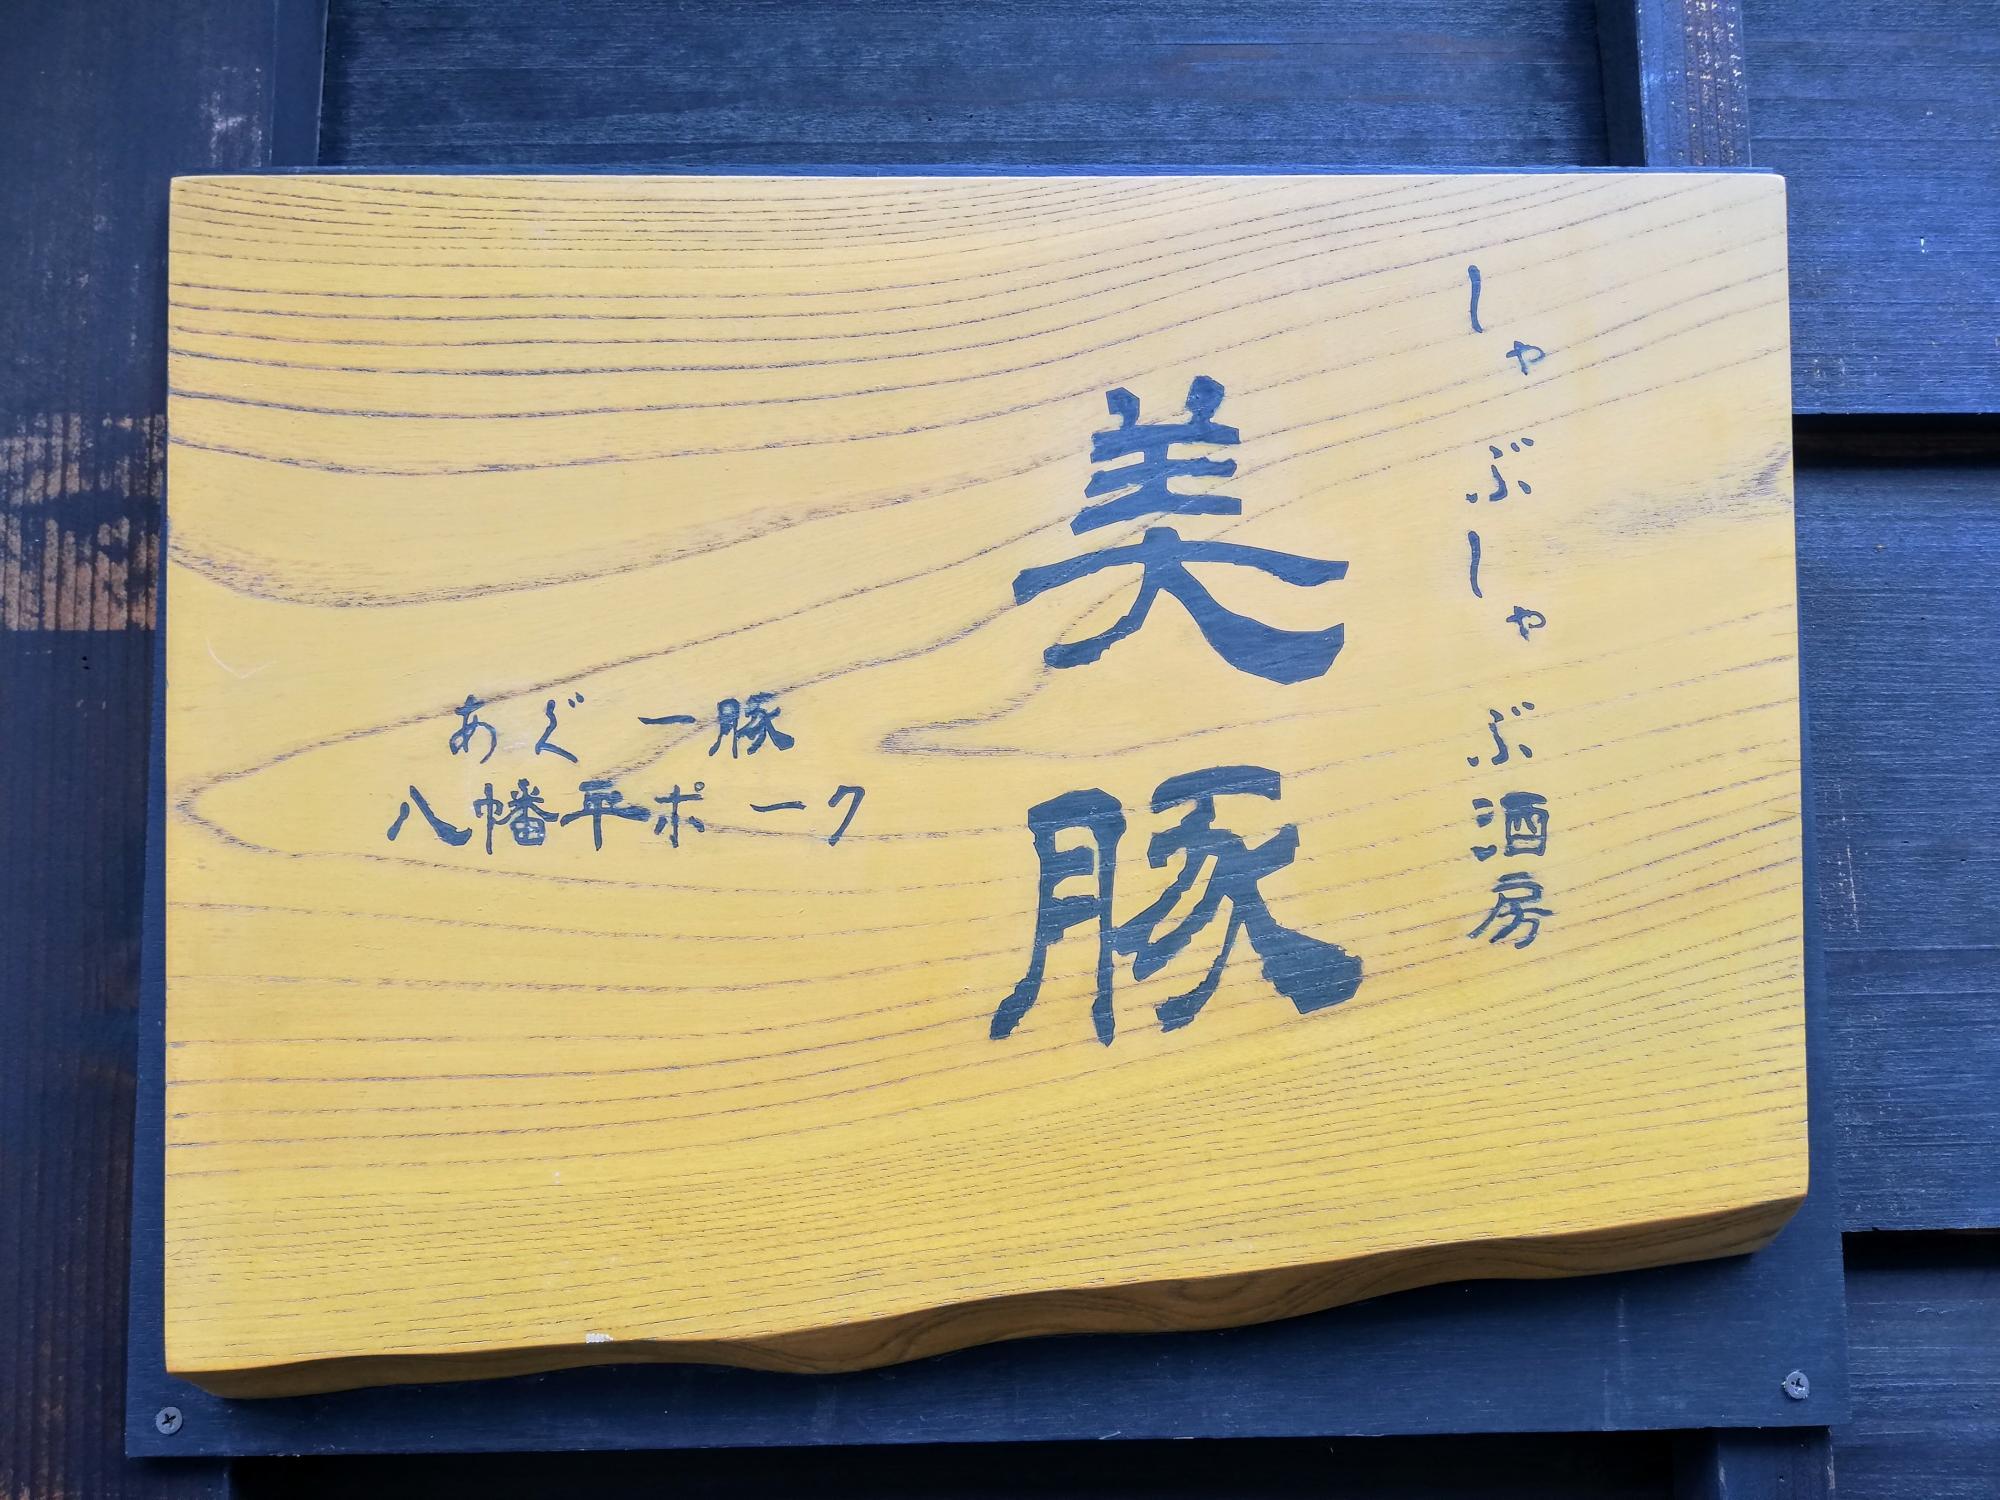 しゃぶしゃぶ酒房
美豚
あぐー豚
八幡平ポーク